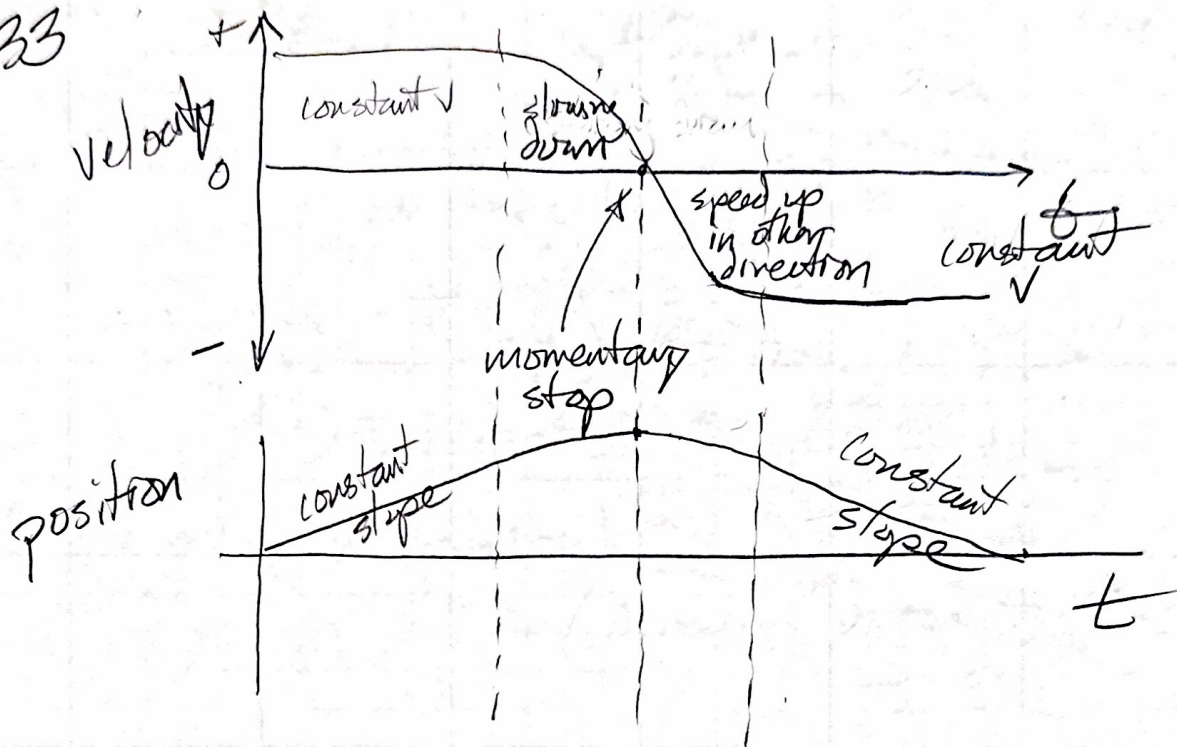 33
+
velocity
0
-
constant v
slowing
down
speed up
in other
direction
constant
v
t
momentary
stop
position
constant
slope
constant
slope
t